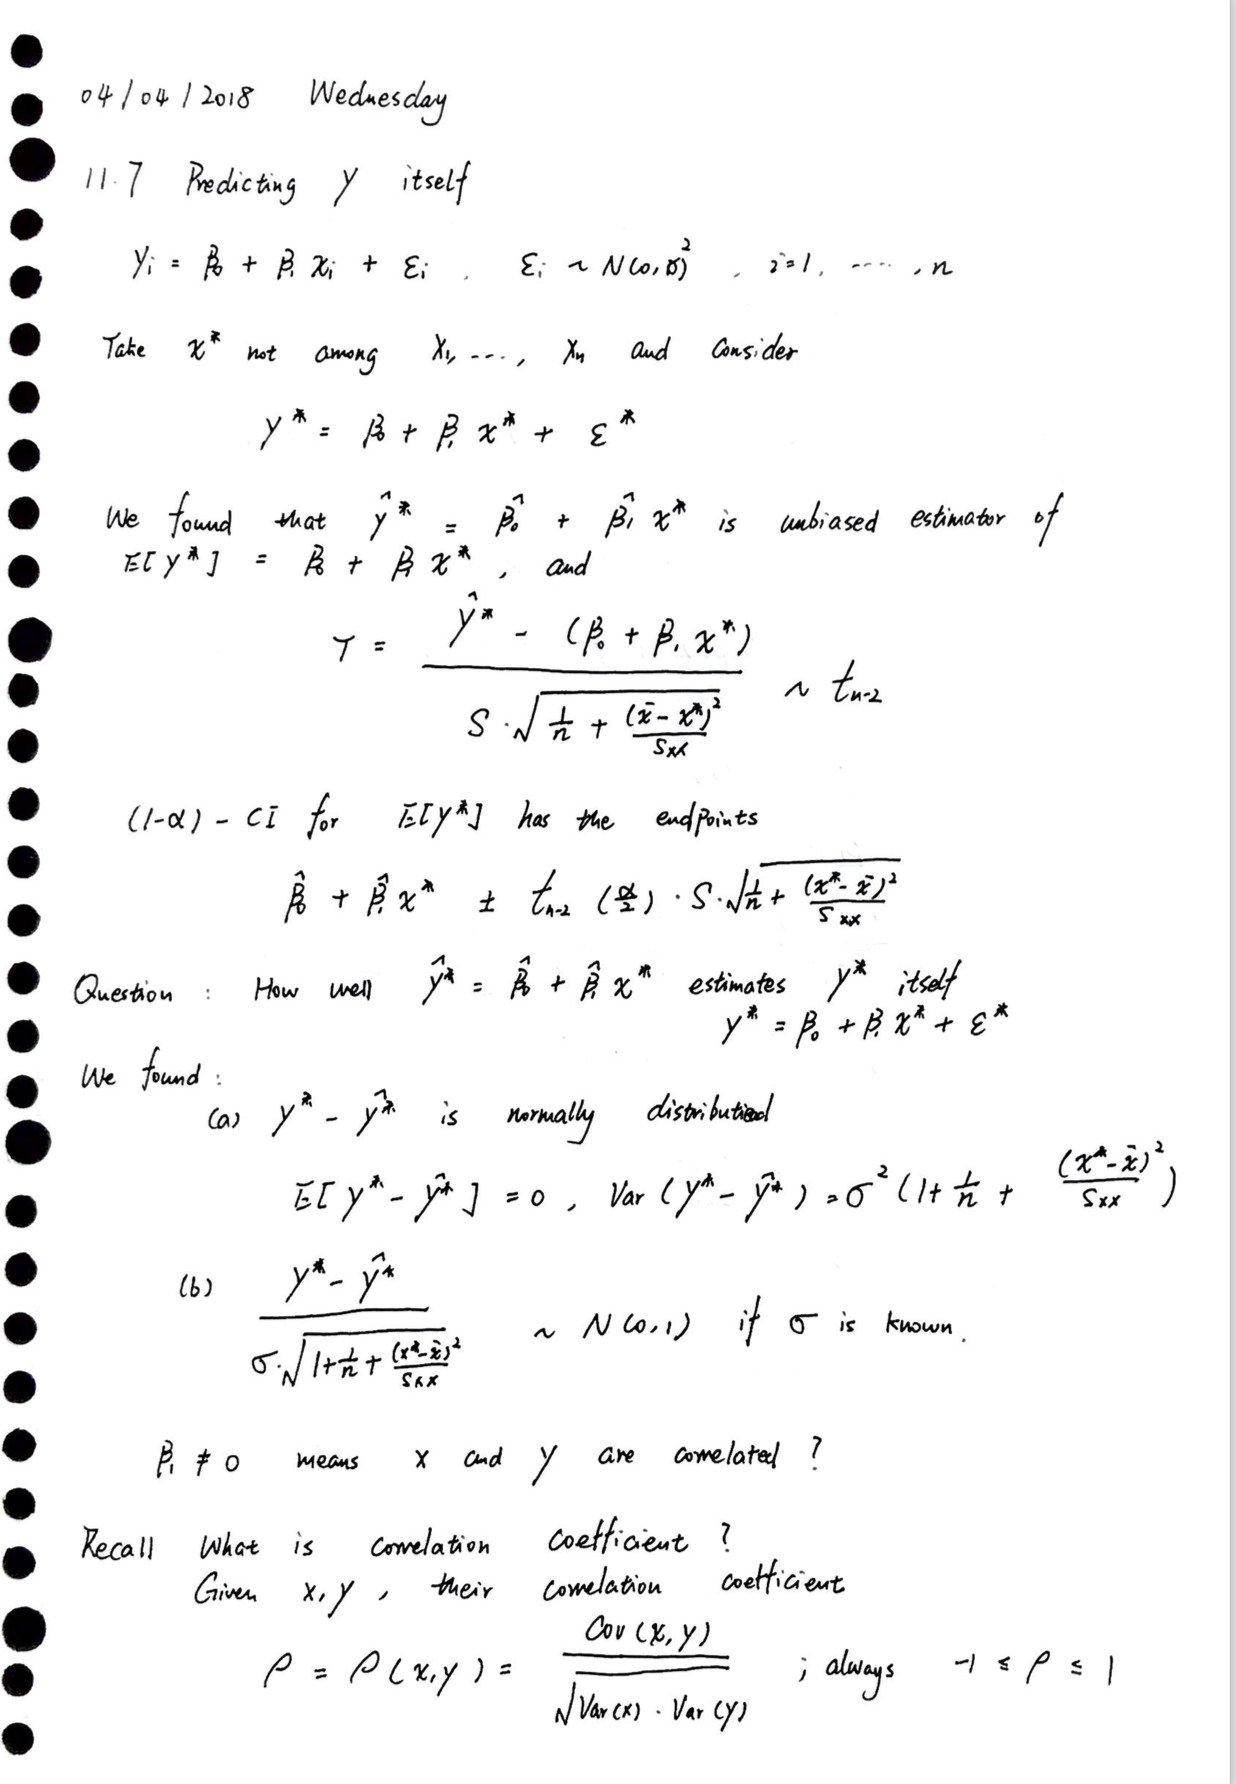 04/04/2018 Wednesday
11.7 Predicting y itself
yᵢ = β₀ + β₁ xᵢ + εᵢ . εᵢ ~ N(0,σ)² , i=1, ...., n
Take x* not among x₁, ..., xₙ and consider
y* = β₀ + β₁ x* + ε*
We found that ŷ* = β̂₀ + β̂₁ x* is unbiased estimator of
E[y*] = β₀ + β₁ x* , and
T = (ŷ* - (β₀ + β₁ x*)) / (S·√(1/n + (x̄ - x*)²/Sxx)) ~ tₙ₋₂
(1-α) - CI for E[y*] has the endpoints
β̂₀ + β̂₁ x* ± tₙ₋₂ (α/2) · S·√(1/n + (x* - x̄)²/Sxx)
Question : How well ŷ* = β̂₀ + β̂₁ x* estimates y* itself
y* = β₀ + β₁ x* + ε*
We found :
(a) y* - ŷ* is normally distributed
E[y* - ŷ*] = 0 , Var (y* - ŷ*) = σ² (1 + 1/n + (x* - x̄)²/Sxx)
(b) (y* - ŷ*) / (σ·√(1 + 1/n + (x* - x̄)²/Sxx)) ~ N(0,1) if σ is known.
β₁ ≠ 0 means x and y are correlated ?
Recall What is correlation coefficient ?
Given x, y , their correlation coefficient
ρ = ρ(x,y) = Cov(x,y) / √(Var(x) · Var(y)) ; always -1 ≤ ρ ≤ 1